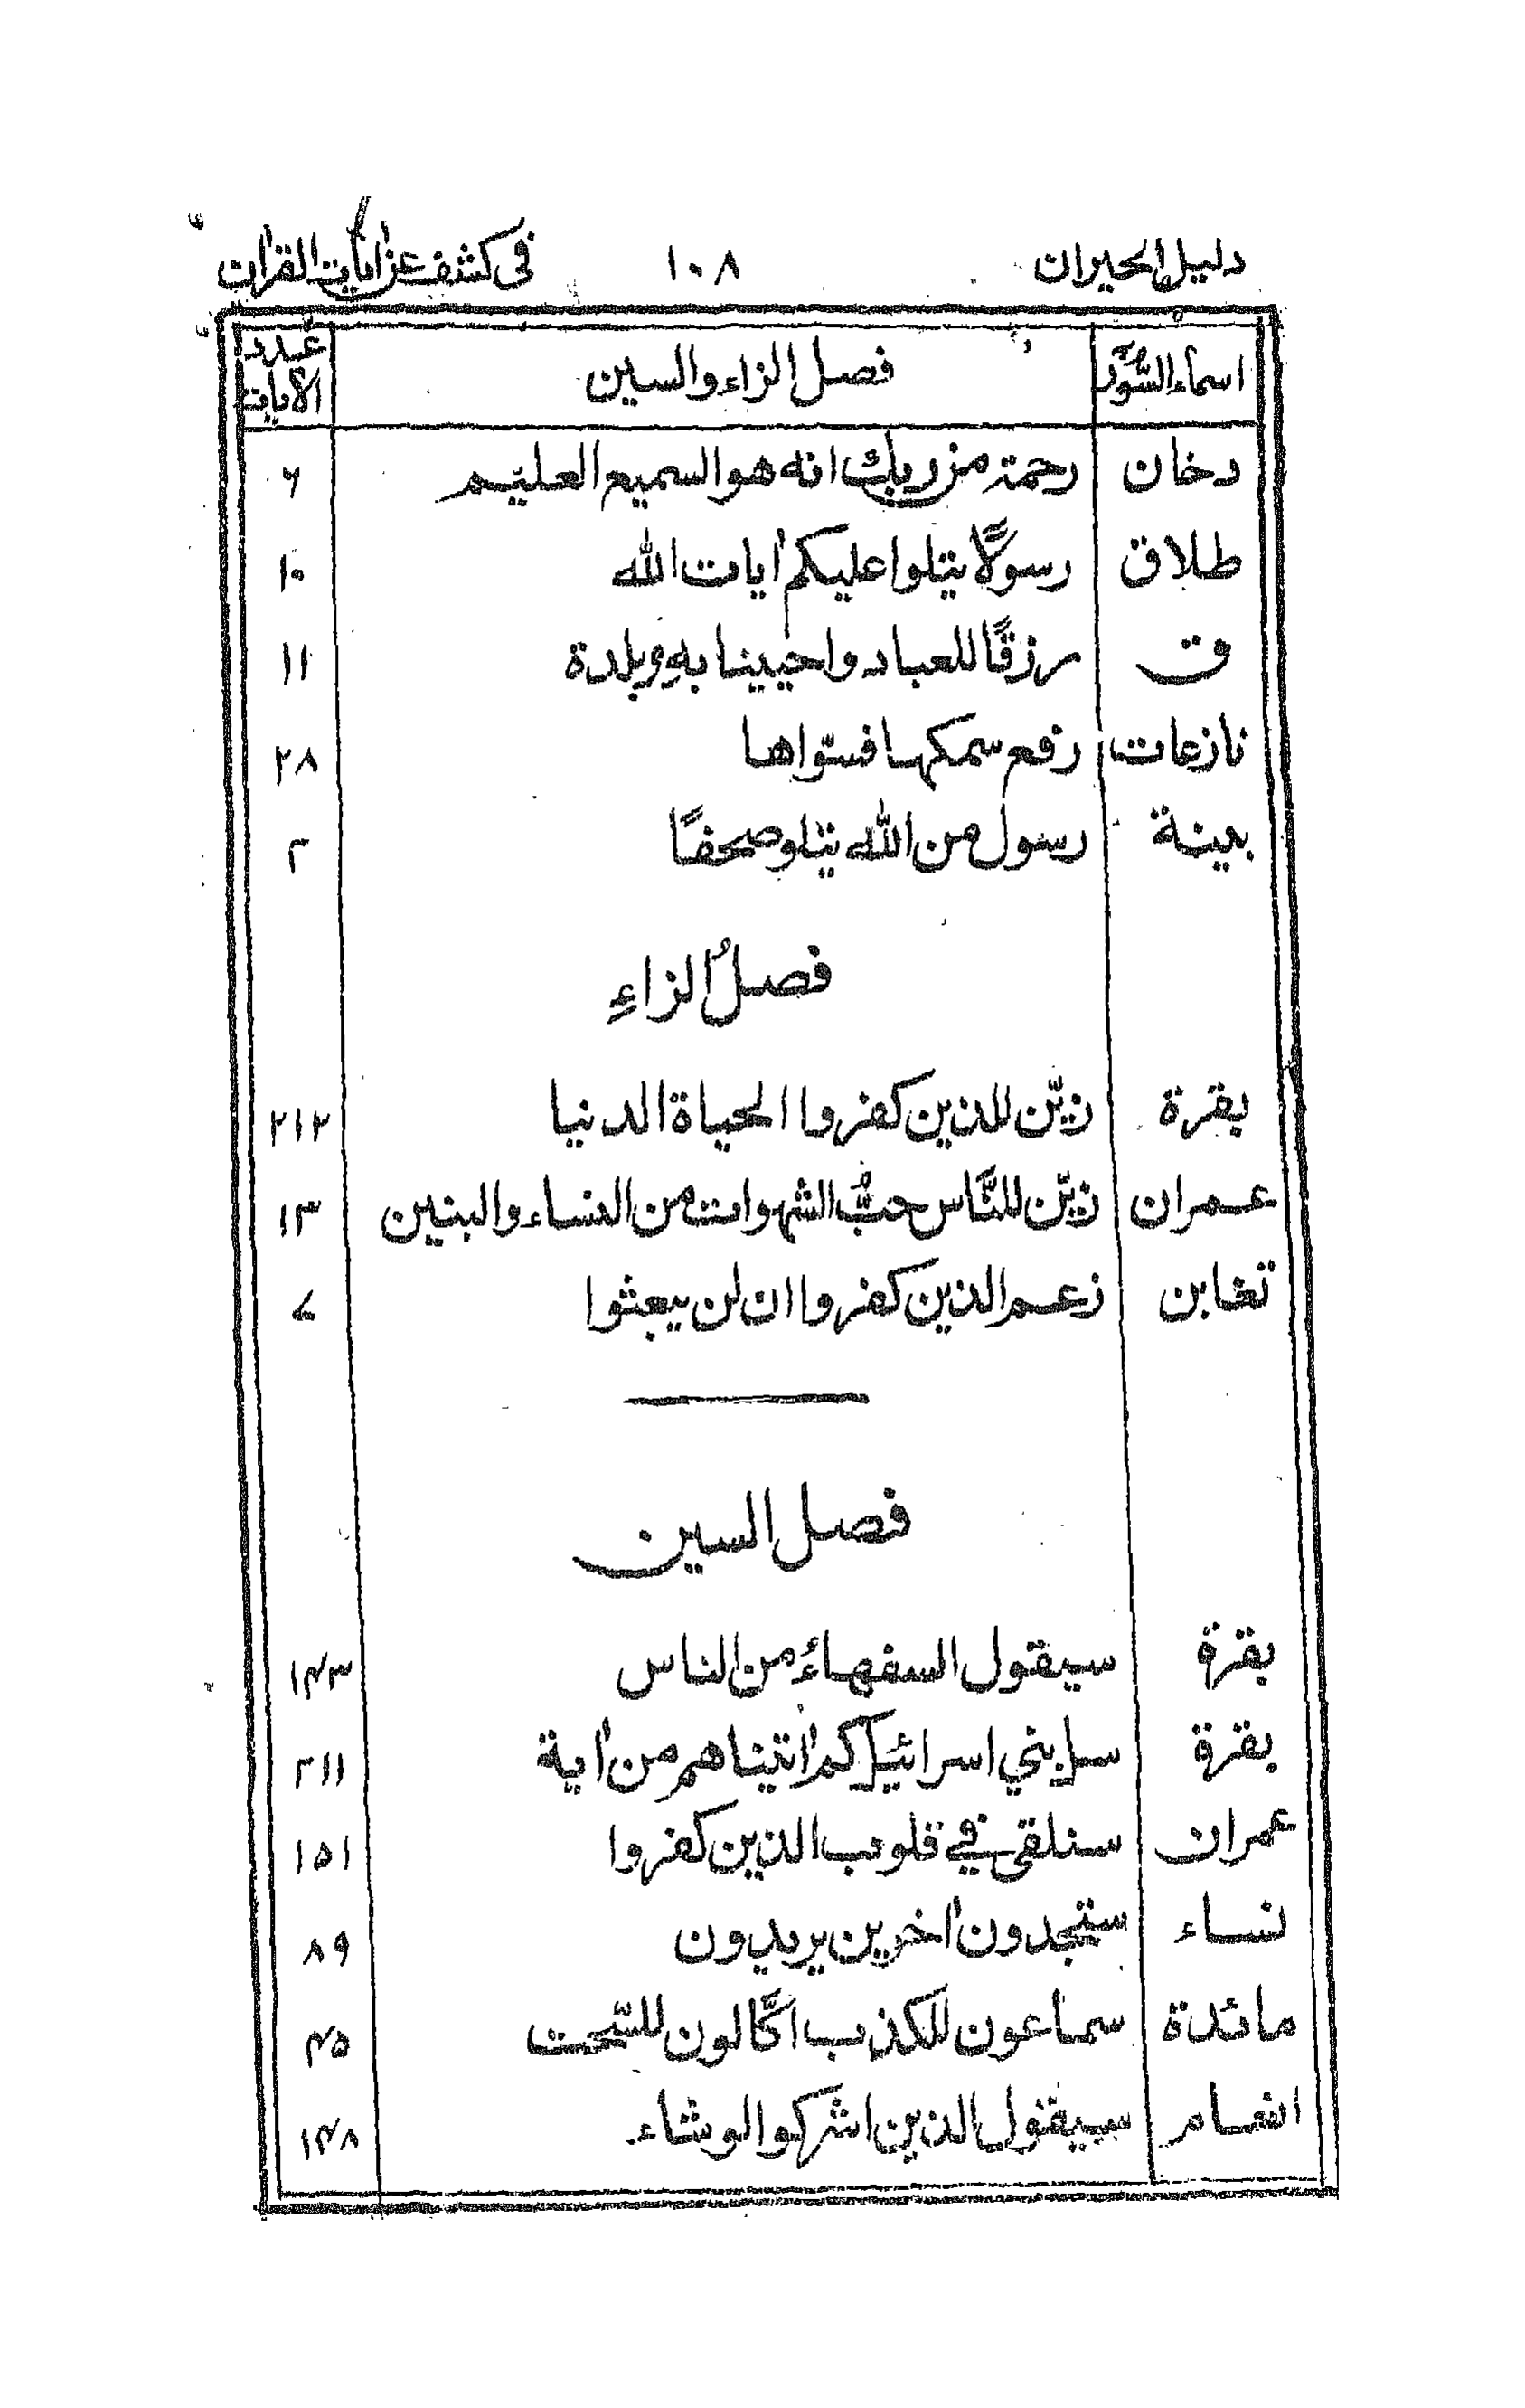 دليل الحيران ١٠٨ في كشف عن اٰيات القراٰن
اسماء السُّوَر فصل الزاء والسين عدد الاٰيات
دخان رحمة من ربك انه هو السميع العليم ۶
طلاق رسولًا يتلوا عليكم اٰيات الله ١٠
ق رزقًا للعباد واحيينا به بلدة ١١
نازعات رفع سمكها فسوّاها ٢٨
بينة رسول من الله يتلو صحفًا ٢
فصلُ الزاءِ
بقرة زيّن للذين كفروا الحياة الدنيا ٢١٢
عمران زيّن للنَّاس حبُّ الشهوات من النساء والبنين ١٣
تغابن زعم الذين كفروا ان لن يبعثوا ٧
فصل السين
بقرة سيقول السفهاءُ من الناس ١۴٣
بقرة سل بني اسرائيل كم اٰتيناهم من اٰية ٢١١
عمران سنلقى في قلوب الذين كفروا ١۵١
نساء ستجدون اٰخرين يريدون ٨٩
مائدة سماعون للكذب اكّالون للسّحت ۴۵
انعام سيقول الذين اشركوا لو شاء ١۴٨